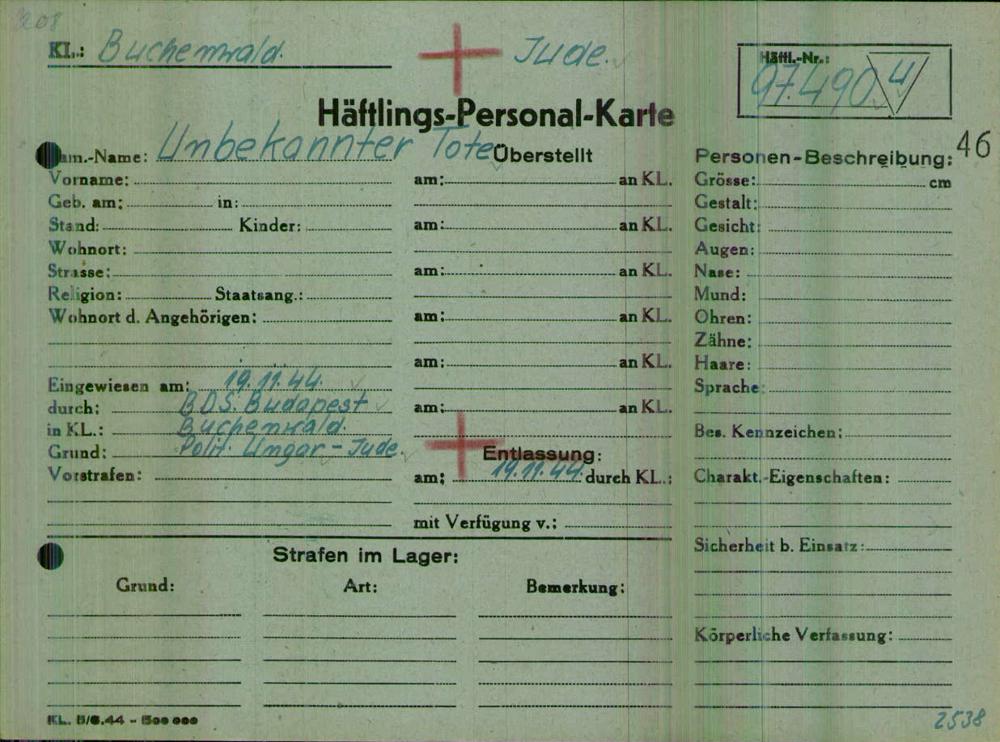 208
KL.: Buchenwald. Jude. Häftl.-Nr.: 97.490 U
Häftlings-Personal-Karte
Fam.-Name: Unbekannter Toter Überstellt Personen-Beschreibung: 46
Vorname: am: an KL. Grösse: cm
Geb. am: in: Gestalt:
Stand: Kinder: am: an KL. Gesicht:
Wohnort: Augen:
Strasse: am: an KL. Nase:
Religion: Staatsang.: Mund:
Wohnort d. Angehörigen: am: an KL. Ohren:
Zähne:
am: an KL. Haare:
Eingewiesen am: 19.11.44. Sprache:
durch: BDS. Budapest am: an KL.
in KL.: Buchenwald. Bes. Kennzeichen:
Grund: Polit. Ungar - Jude. Entlassung:
Vorstrafen: am: 19.11.44. durch KL.: Charakt.-Eigenschaften:
mit Verfügung v.:
Strafen im Lager: Sicherheit b. Einsatz:
Grund: Art: Bemerkung:
Körperliche Verfassung:
KL. 5/6.44 - 500 000 2538